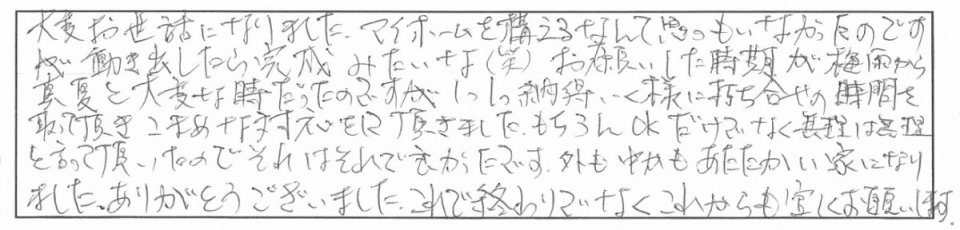 大変お世話になりました。マイホームを構えるなんて思ってもいなかったのです
が 動き出したら完成 みたいな(笑) お願いした時期が梅雨から
真夏と大変な時だったのですが 1つ1つ納得いく様に打ち合せの時間を
取って頂き こまめな対応をして頂きました。もちろんOKだけでなく無理は無理
と言って頂いたので それはそれで良かったです。外も中もあたたかい家になり
ました。ありがとうございました。これで終わりでなくこれからも宜しくお願いします。